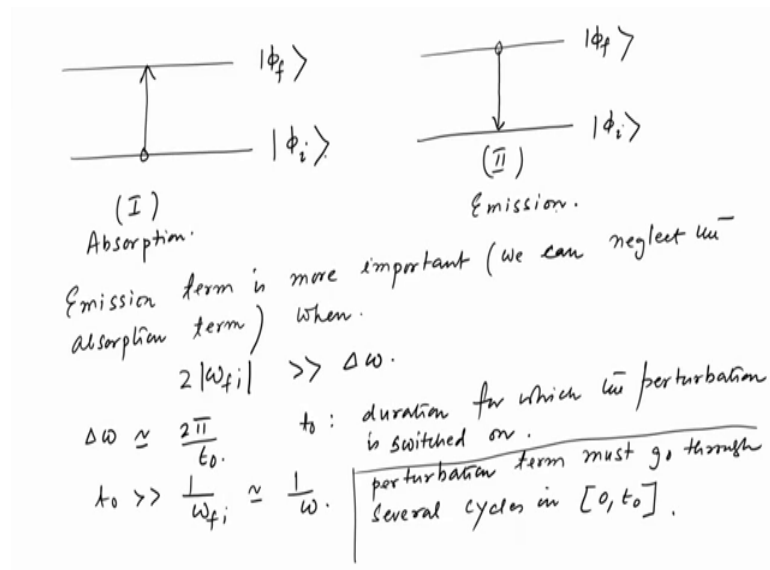 |ϕf⟩
|ϕi⟩
(I)
Absorption.
|ϕf⟩
|ϕi⟩
(II)
Emission.
Emission term is more important (we can neglect the
absorption term) when.
2|ωfi| >> Δω.
Δω ≃ 2π/t0. t0 : duration for which the perturbation
is switched on.
t0 >> 1/ωfi ≃ 1/ω. perturbation term must go through
several cycles in [0, t0].